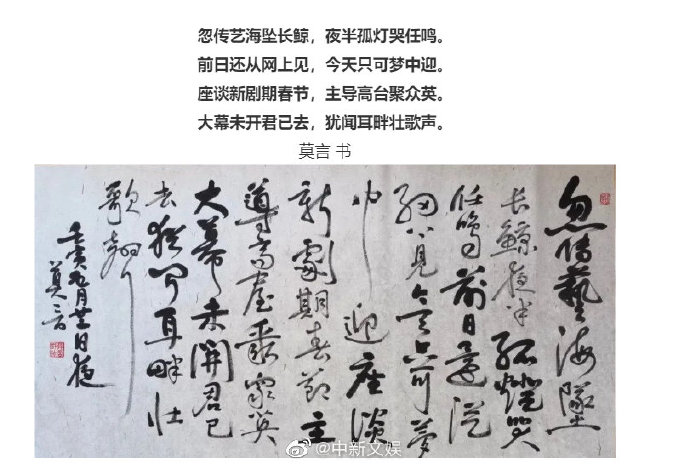 忽传艺海坠长鲸，夜半孤灯哭任鸣。
前日还从网上见，今天只可梦中迎。
座谈新剧期春节，主导高台聚众英。
大幕未开君已去，犹闻耳畔壮歌声。
莫言 书
忽傳藝海墜
长鲸夜半孤燈哭
任鳴前日還從
網上見今天只可夢
中迎座談
新劇期春節主
導高臺聚眾英
大幕未開君已
去猶聞耳畔壮
歌聲
壬寅五月廿一日夜
莫言
@中新文娱